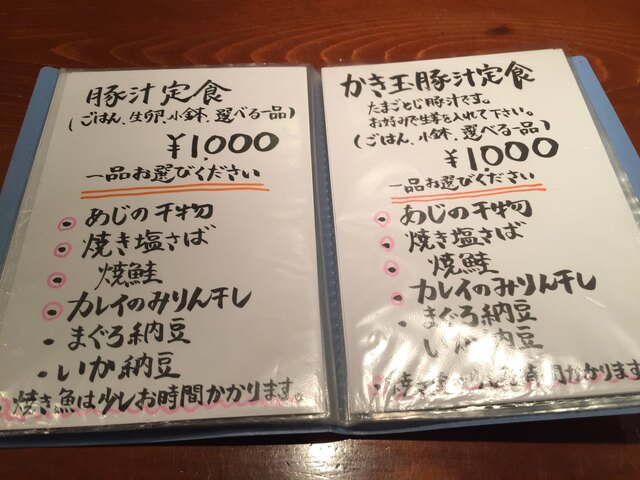 豚汁定食
(ごはん、生卵、小鉢、選べる一品)
¥1,000
一品お選びください
あじの干物
焼き塩さば
焼鮭
カレイのみりん干し
・まぐろ納豆
・いか納豆
焼き魚は少しお時間かかります。
かき玉豚汁定食
たまごとじ豚汁です。
お好みで生姜を入れて下さい。
(ごはん、小鉢、選べる一品)
¥1,000
一品お選びください
あじの干物
焼き塩さば
焼鮭
カレイのみりん干し
・まぐろ納豆
・いか納豆